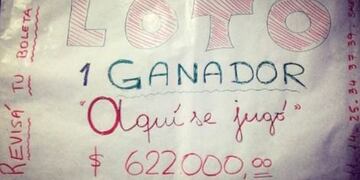 LOTO
1 GANADOR
"Aquí se jugó"
$ 622000,00
REVISÁ TU BOLETA
25 34 37 39